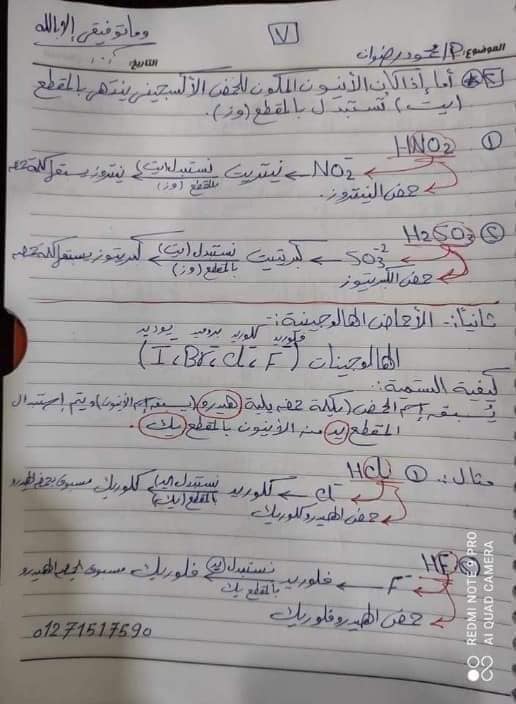 وما توفيقي إلا بالله
٧
الموضوع: P/ محمود رضوان
التاريخ:
٢ أما إذا كان الأنيون المكون للحمض الأكسجيني ينتهي بالمقطع
(يت) تستبدل بالمقطع (وز).
① HNO2
NO2- ← نيتريت نستبدل (يت) بالمقطع (وز) نيتروز يسبقها كلمة حمض
حمض النيتروز.
② H2SO3
SO3-2 ← كبريتيت نستبدل (يت) بالمقطع (وز) كبريتوز يسبقها كلمة حمض
حمض الكبريتوز
ثانياً:- الأحماض الهالوجينية:-
فلوريد كلوريد بروميد يوديد
الهالوجينات (I, Br, Cl, F)
كيفية التسمية:
يُسبق إسم الحمض (بكلمة حمض يليه هيدرو) (يسبق إسم الأنيون) ويتم إستبدال
المقطع يد من الأنيون بالمقطع يك.
مثال:- ① HCl
Cl- ← كلوريد نستبدل (يد) بالمقطع (يك) كلوريك مسبوق بحمض الهيدرو
حمض الهيدروكلوريك
② HF
F- ← فلوريد نستبدل يد بالمقطع يك فلوريك مسبوق بحمض الهيدرو
حمض الهيدروفلوريك
01271517590
REDMI NOTE 9 PRO
AI QUAD CAMERA